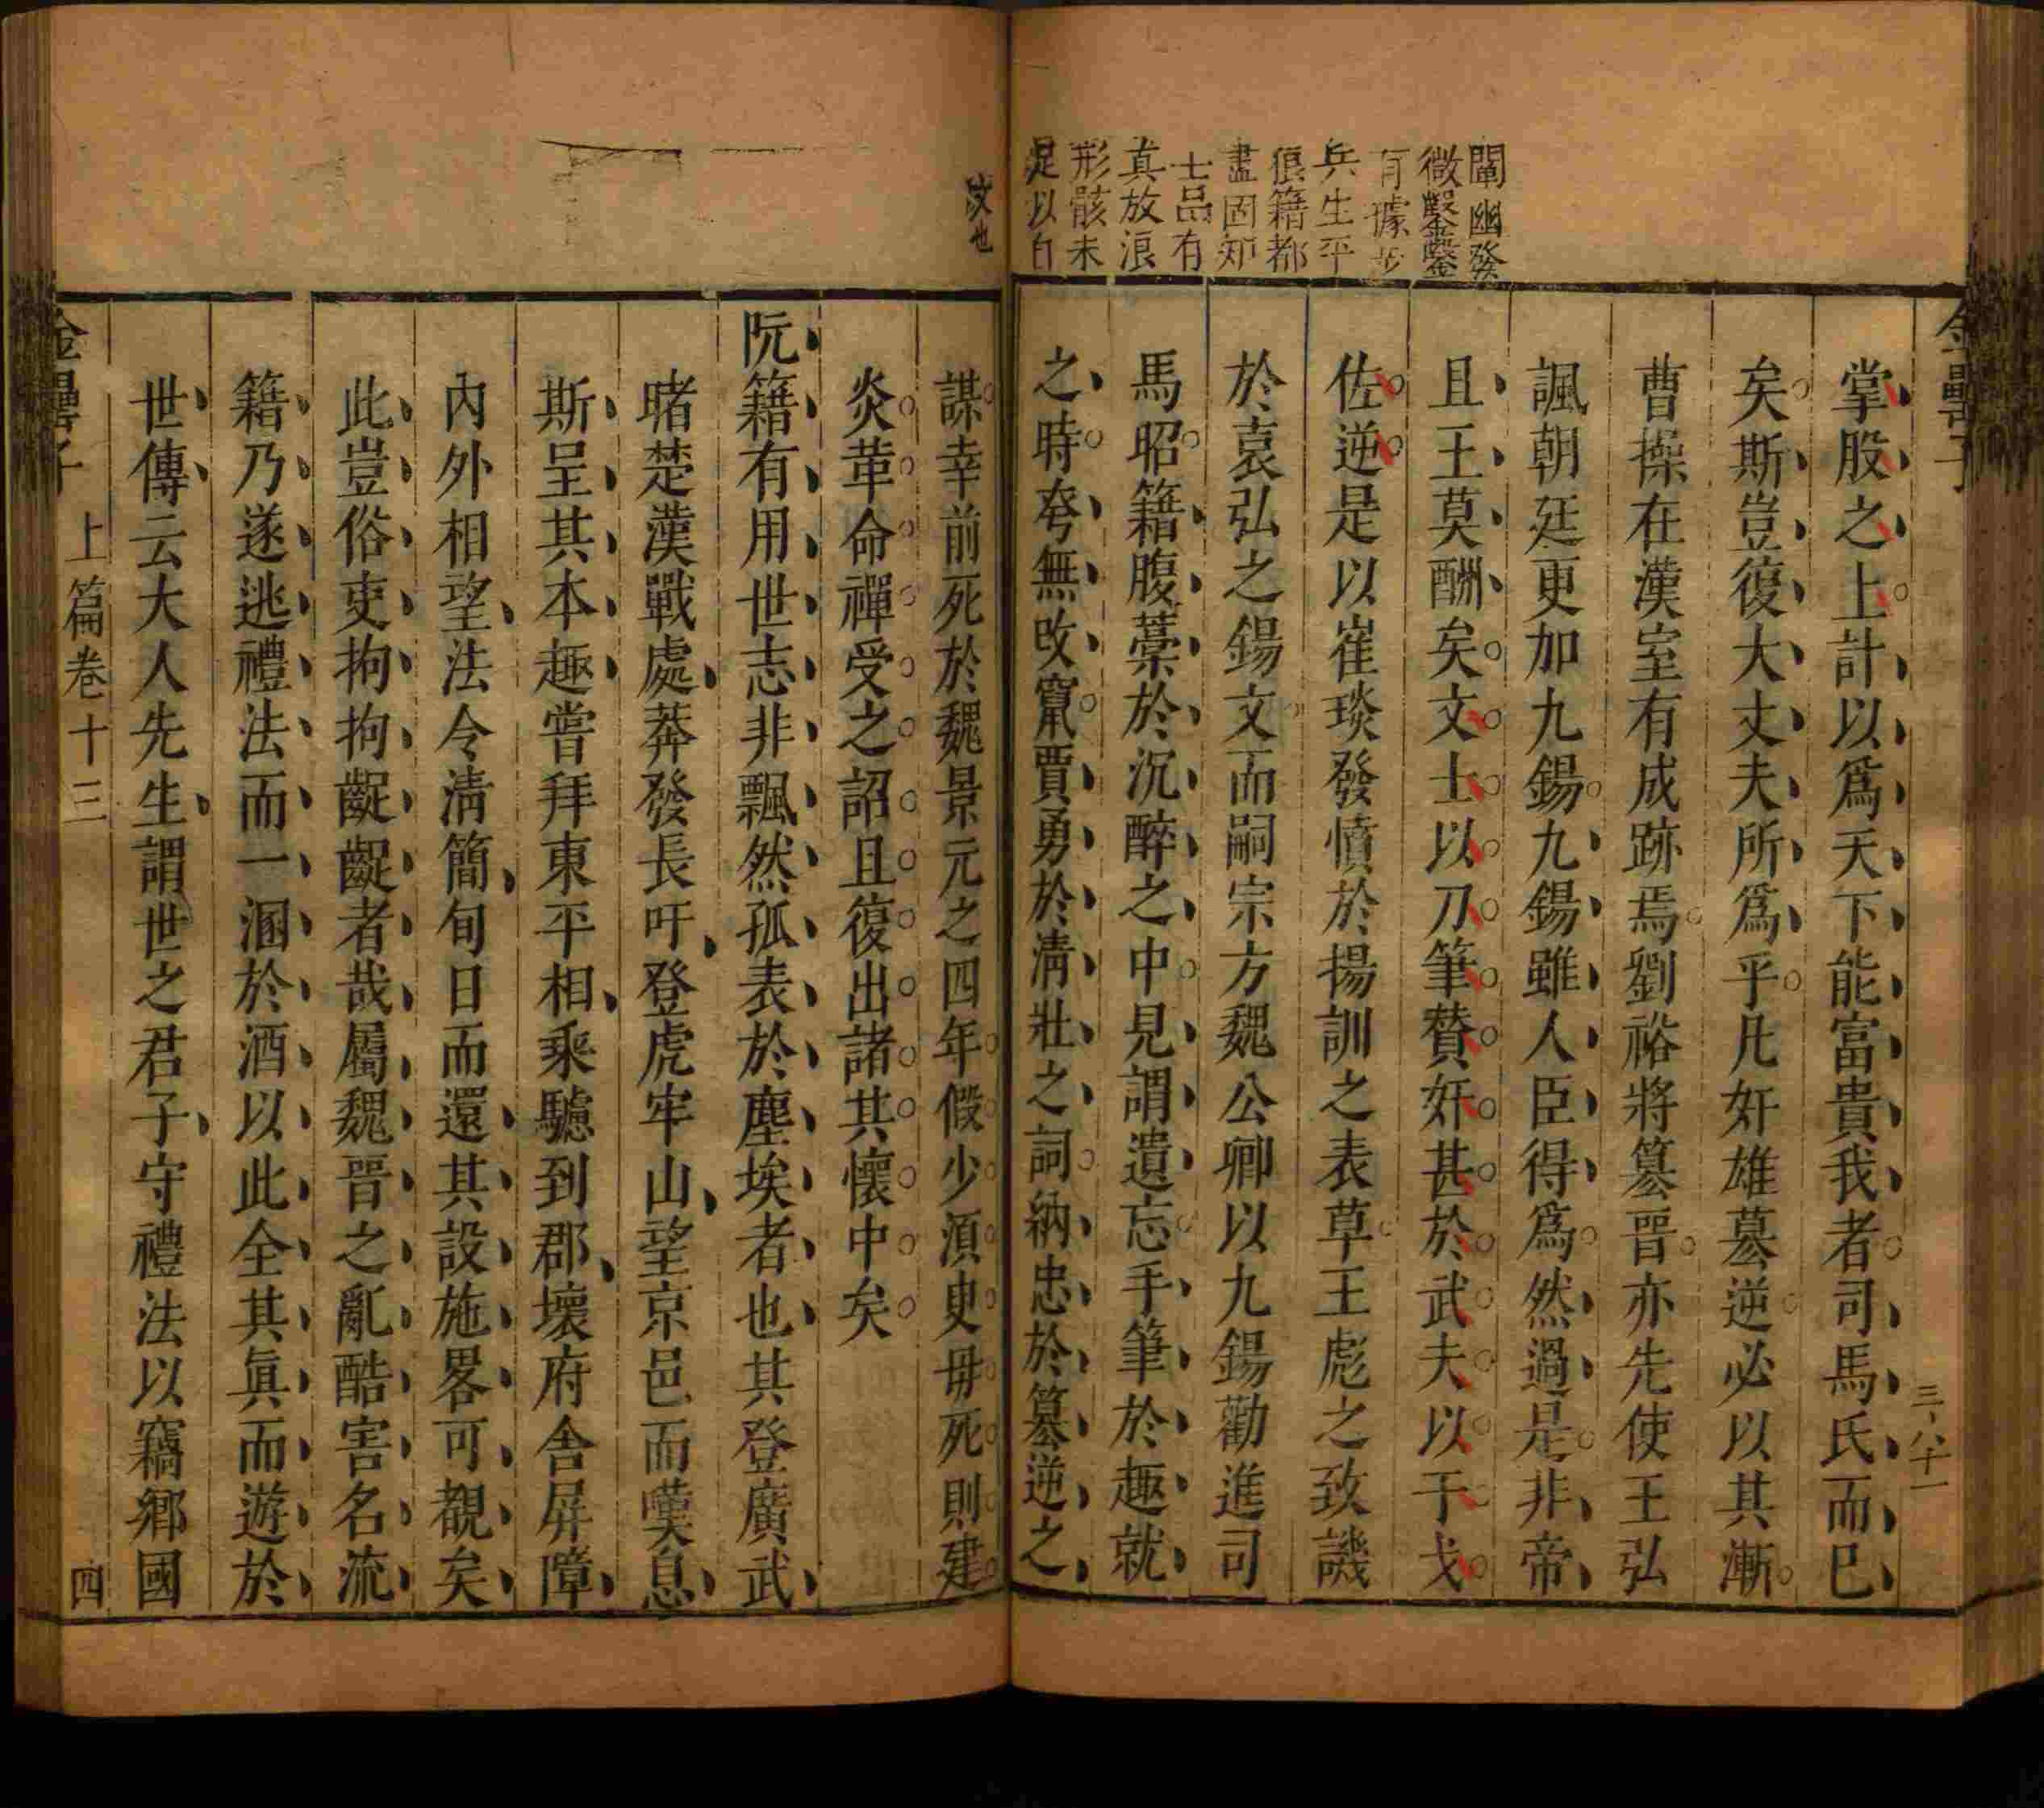 闡幽發
微鑿鑿
有據步
兵生平
狼籍都
盡固知
士品有
真放浪
形骸未
足以自
掌股之上計以爲天下能富貴我者司馬氏而已
矣斯豈復大丈夫所爲乎凡奸雄篡逆必以其漸
曹操在漢室有成跡焉劉裕將篡晉亦先使王弘
諷朝廷更加九錫九錫雖人臣得爲然過是非帝
且王莫酬矣文士以刀筆贊奸甚於武夫以干戈
佐逆是以崔琰發憤於揚訓之表草王彪之致譏
於袁弘之錫文而嗣宗方魏公卿以九錫勸進司
馬昭籍腹藁於沉醉之中見謂遺忘手筆於趣就
之時夸無改竄賈勇於清壯之詞納忠於篡逆之
金罍子
三八十一
汶也
謀幸前死於魏景元之四年假少須臾毋死則建
炎革命禪受之詔且復出諸其懷中矣
阮籍有用世志非飄然孤表於塵埃者也其登廣武
睹楚漢戰處莽發長吁登虎牢山望京邑而嘆息
斯呈其本趣嘗拜東平相乘驢到郡壞府舍屏障
內外相望法令清簡旬日而還其設施畧可覩矣
此豈俗吏拘拘齪齪者哉屬魏晉之亂酷害名流
籍乃遂逃禮法而一溷於酒以此全其眞而遊於
世傳云大人先生謂世之君子守禮法以竊鄉國
金罍子
上篇卷十三
四